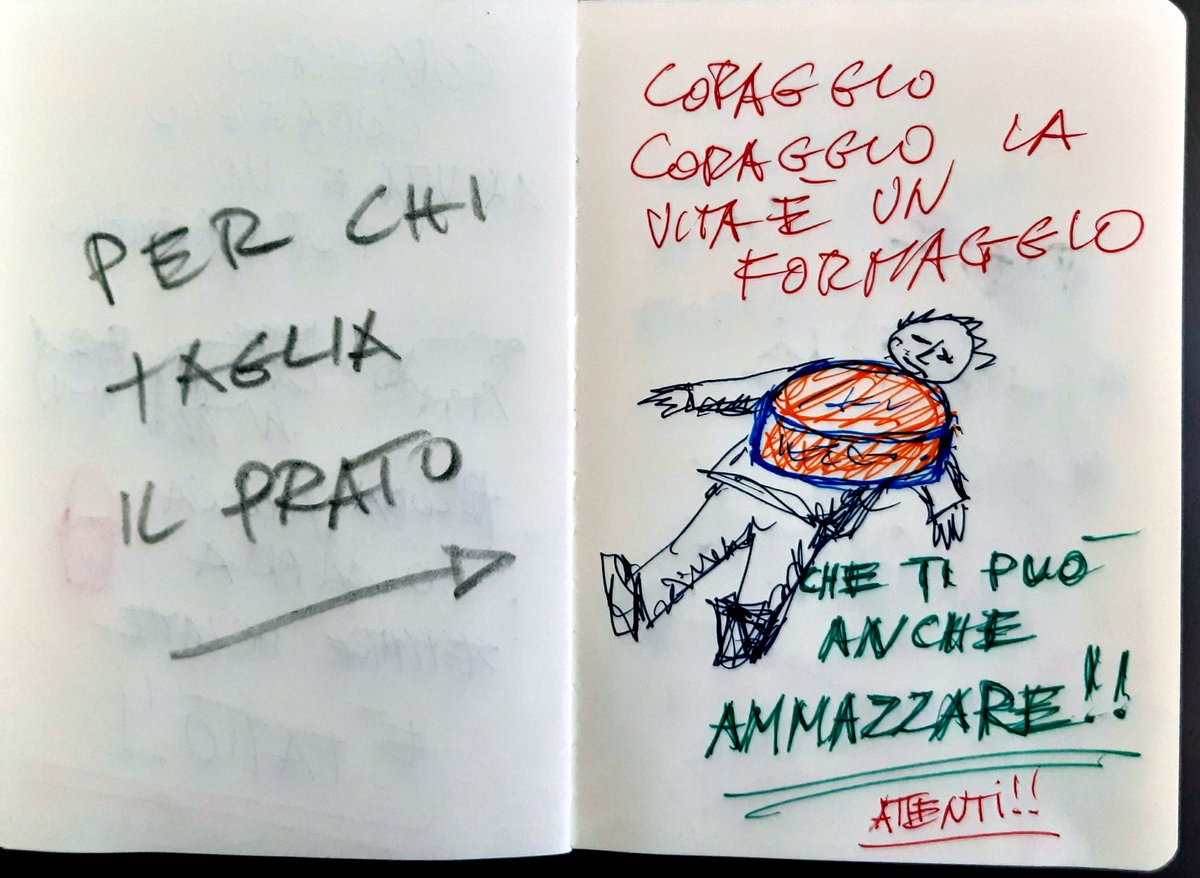 PER CHI
TAGLIA
IL PRATO
CORAGGIO
CORAGGIO, LA
VITA È UN
FORMAGGIO
CHE TI PUÒ
ANCHE
AMMAZZARE!!
ATTENTI!!